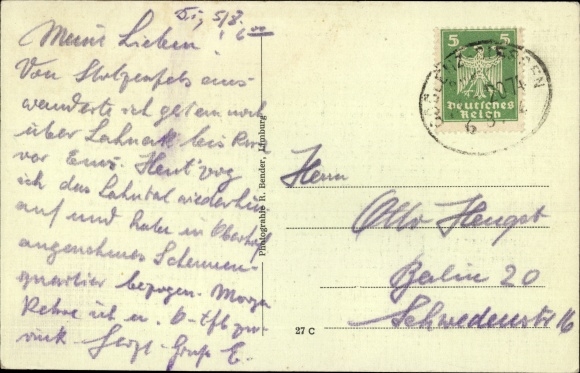 Di, 5/8.
6 00
Meine Lieben!
Von Stolzenfels aus
wanderte ich gestern noch
über Lahneck bis kurz
vor Ems. Heut' zog
ich das Lahntal wieder
auf und habe in
angenehmes Scheunen-
quartier bezogen. Morgen
Kehre ich n. zu-
rück. Herzl. Gruß E.
Photographie R. Bender, Limburg
27 C
5 5
Deutsches
Reich
GIESSEN
Herrn
Otto Hengst
Berlin 20
Schwedenstr 16